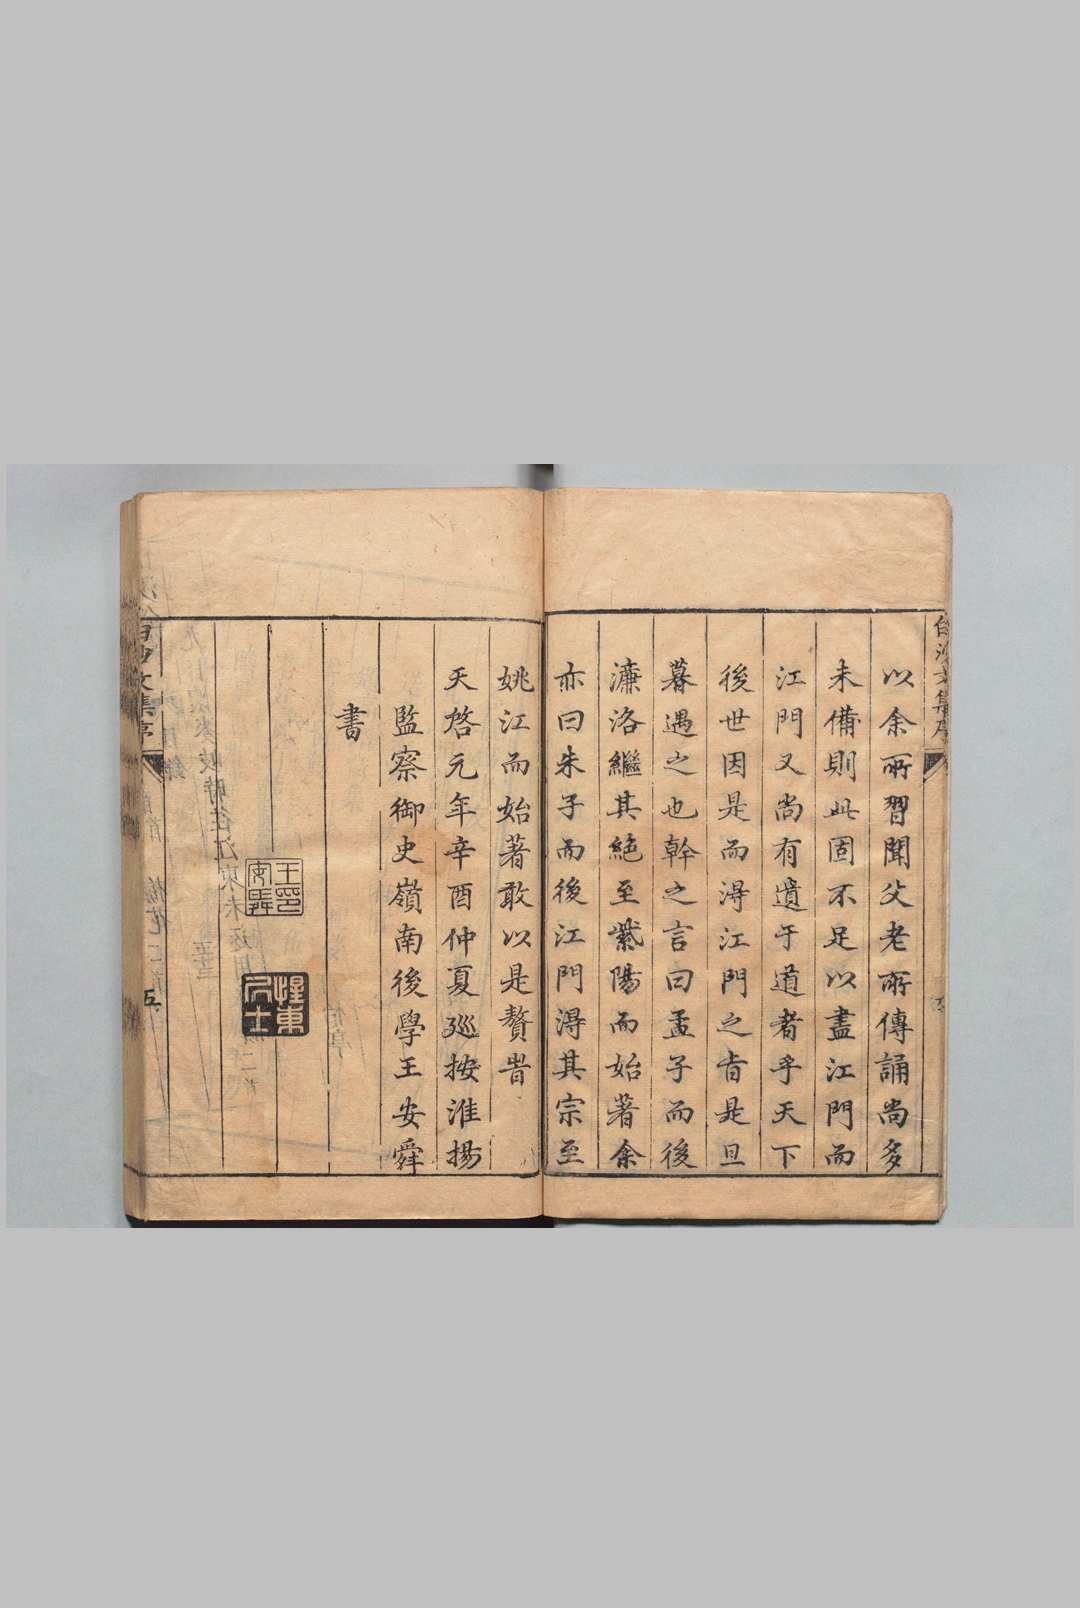 以余所習聞父老所傳誦尚多
未備則此固不足以盡江門而
江門又尚有遺于道者乎天下
後世因是而淂江門之㫖是旦
暮遇之也幹之言曰孟子而後
濂洛繼其絕至紫陽而始著余
亦曰朱子而後江門淂其宗至
姚江而始著敢以是贅昔
天啓元年辛酉仲夏廵按淮揚
監察御史嶺南後學王安舜
書
王印
安舜
惺東
居士
白沙文集序
五